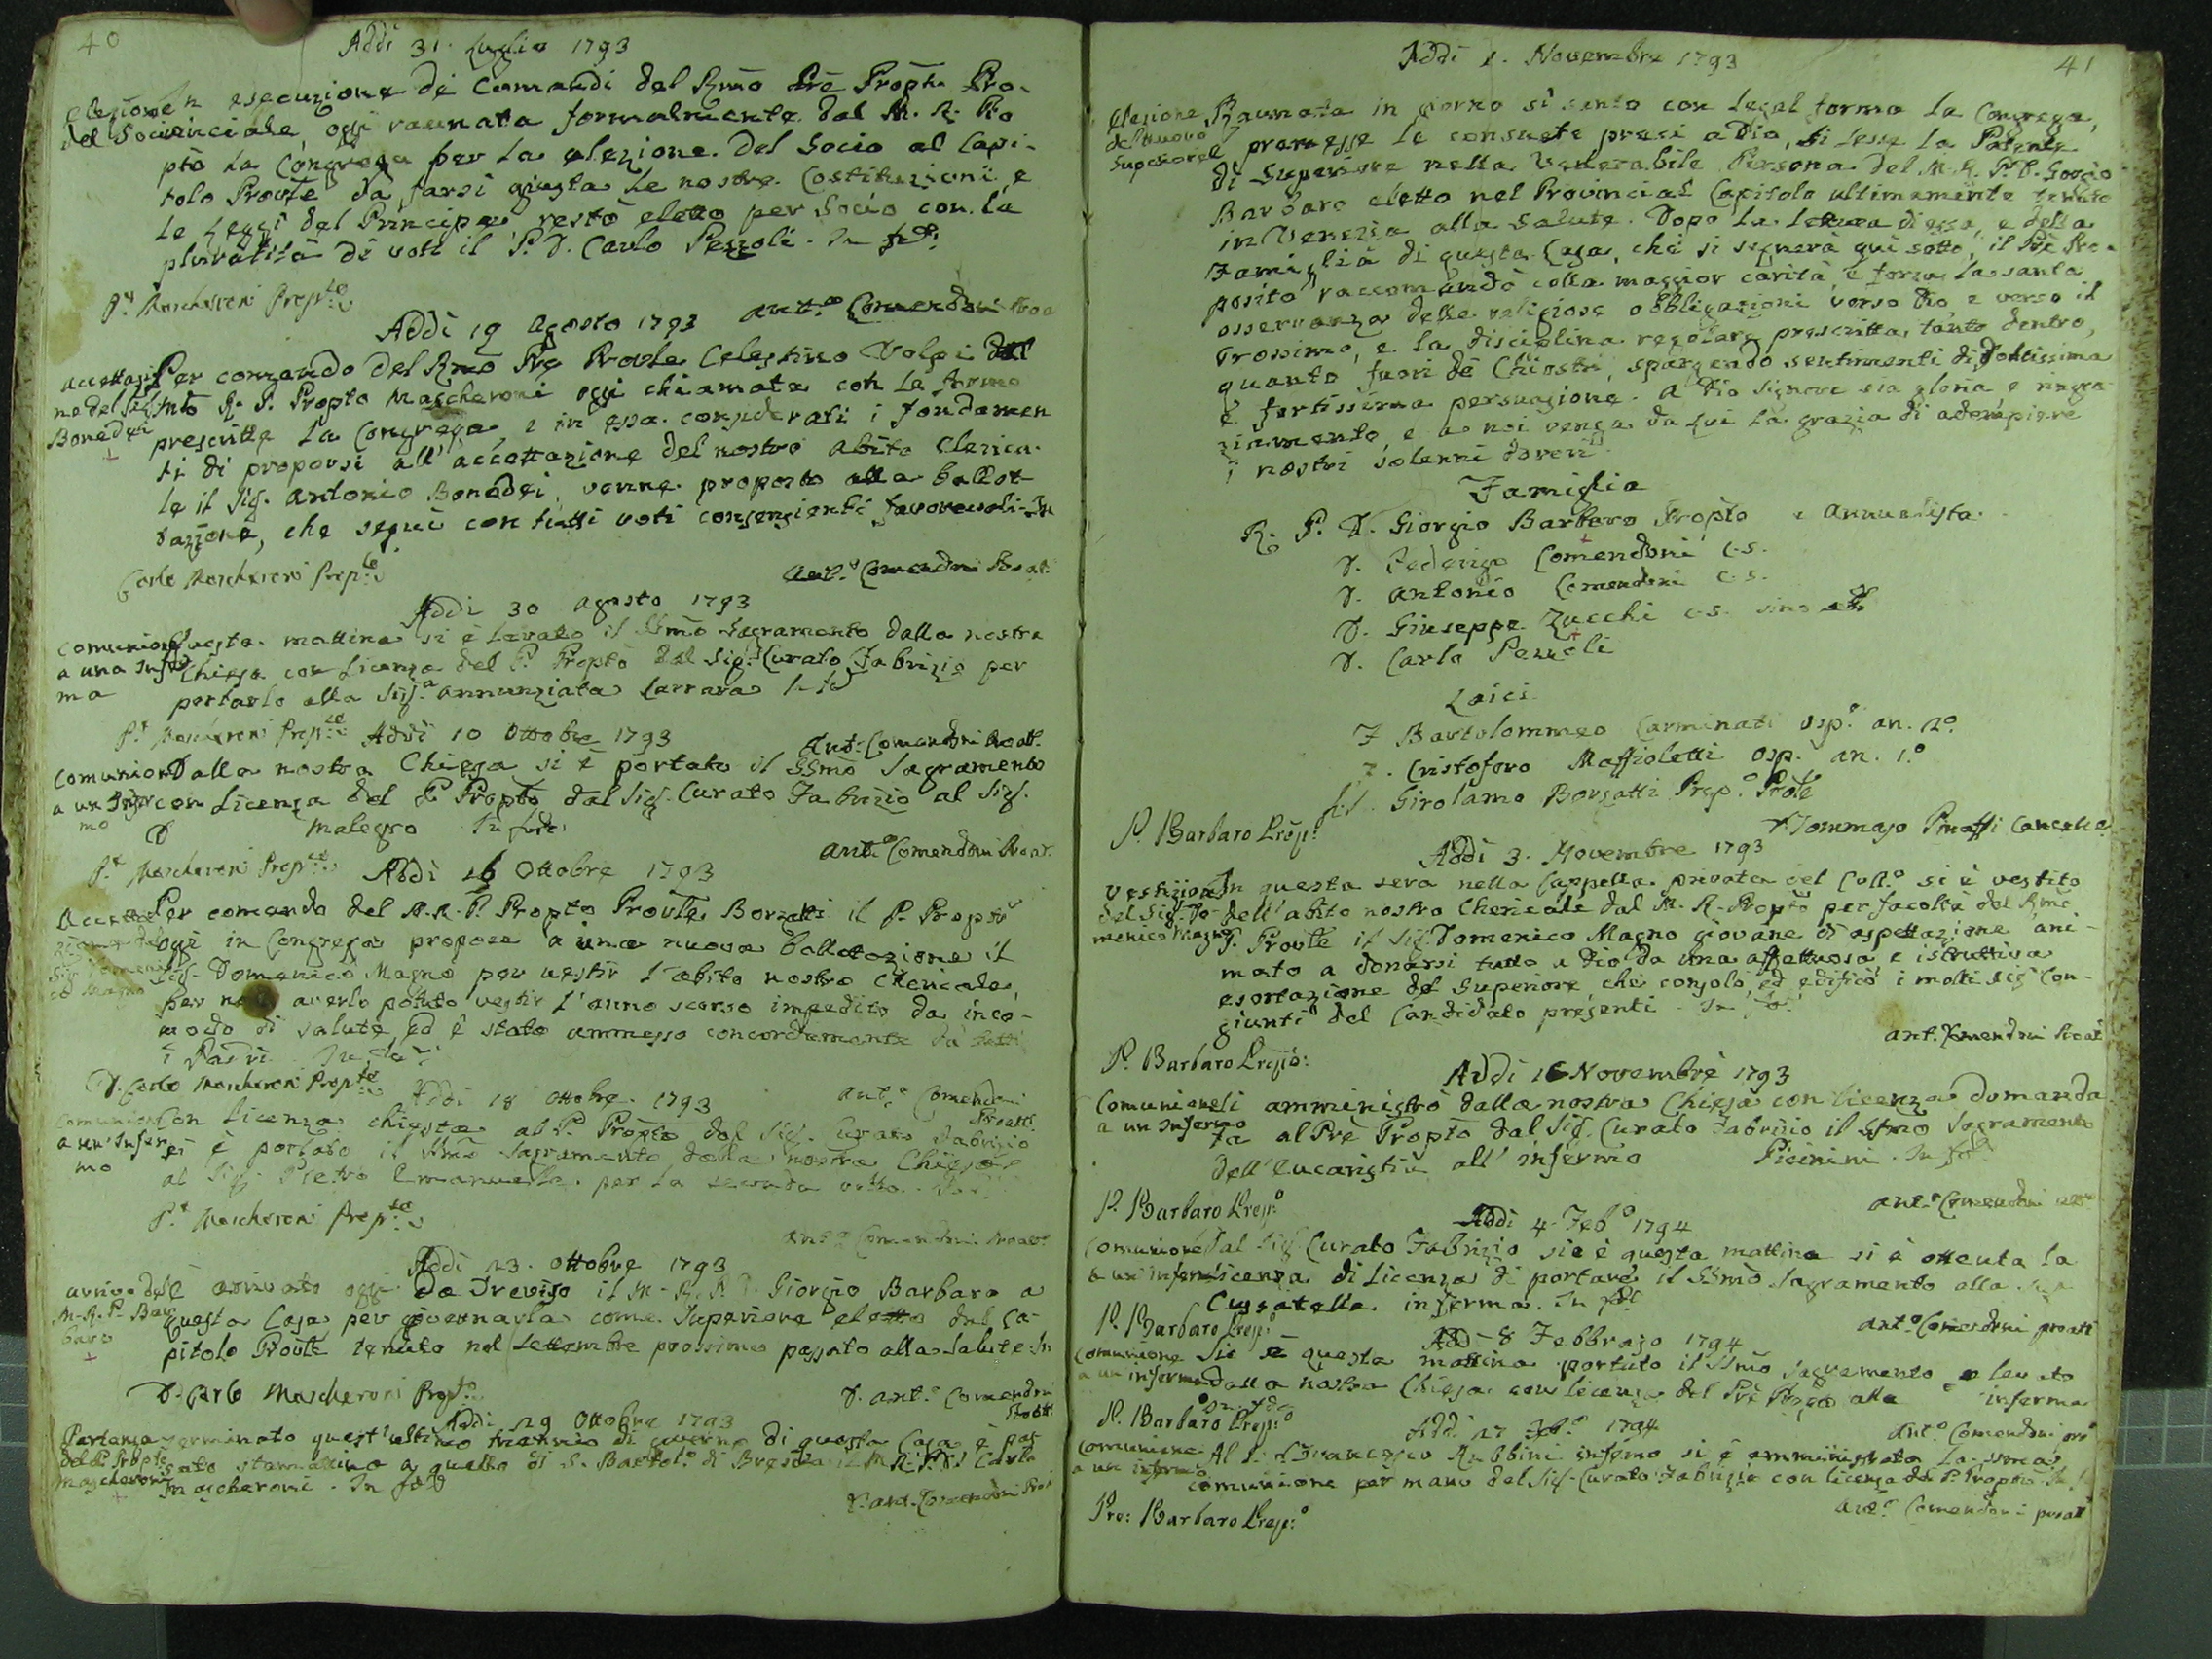 40
Addi 31. Luglio 1793
elezione In esecuzione de Comandi del Rmo Pre Propto Pro-
del Socio vinciale, oggi raunata formalmente dal M. R. Pro
pto la Congrega per la elezione del Socio al Capi-
tolo Provle da farsi giusta le nostre Costituzioni, e
le Leggi del Principe restò eletto per Socio con la
pluralità di voti il P. D. Carlo Pezzoli. In fede
Pr Mascheroni Prepto
Anto Comendoni Proat
Addi 19 Agosto 1793
accettazio Per comando del Rmo Pre Provle Celestino Volpi dal
ne del Sig. Anto R. P. Propto Mascheroni oggi chiamata con le forme
Bonedei prescritte la Congrega, e in essa considerati i fondamen
ti di proporsi all'accettazione del nostro abito Clerica-
le il Sig. Antonio Bonedei, venne proposto alla ballot-
tazione, che seguì con tutti voti consenzienti favorevoli. In
Carlo Mascheroni Prepto
Anto Comendoni Proat.
Addi 30 Agosto 1793
comunione Questa mattina si è levato il SSmo Sagramento dalla nostra
a una Infer Chiesa con licenza del P. Propto dal Sigr Curato Fabrizio per
ma portarlo alla Siga Annunziata Carrara In fe
Pr Mascheroni Prepto
Addi 10 Ottobre 1793
Anto Comendoni Proatt.
comunione Dalla nostra Chiesa si è portato il SSmo Sagramento
a un Infer con licenza del P. Propto dal Sig. Curato Fabrizio al Sig.
mo D Malegro In fede
Anto Comendoni Proat.
Pr Mascheroni Prepto
Addi 16 Ottobre 1793
Accetta Per comando del M. R. P. Propto Provle Borzatti il P. Propto
zione del oggi in Congrega propose a una nuova ballotazione il
Sig Domeni Sig. Domenico Magno per vestir l'abito nostro Chericale,
co Magno per non averlo potuto vestir l'anno scorso impedito da inco-
modo di salute, ed è stato ammesso concordamente da tutti
i Padri. In fe
D. Carlo Mascheroni Prepto
Anto Comendoni
Proatt.
Addi 18 Ottobre 1793
Comunione Con licenza chiesta al P. Propto dal Sig. Curato Fabrizio
a un Infer si è portato il SSmo Sagramento dalla nostra Chiesa
mo al Sig. Pietro Emanuelle per la seconda volta. In f.
Pr Mascheroni Prepto
Anto Comendoni Proatt
Addi 23. Ottobre 1793
arrivo del È arrivato oggi da Treviso il M. R. P. D. Giorgio Barbaro a
M. R. P. Bar questa Casa per governarla come Superiore eletto dal Ca-
baro pitolo Provle tenuto nel Settembre prossimo passato alla Salute. In
D. Carlo Mascheroni Prepto
D. Anto Comendoni
Proatt.
Addi 29 Ottobre 1793
Partenza Terminato quest'ultimo triennio di governo di questa Casa è pas
del P. Propto sato stamattina a quella di S. Bartolo di Brescia il M. R. P. D. Carlo
Mascheroni Mascheroni. In fede
D. Ant. Comendoni Proa
41
Addi 1. Novembre 1793
elezione Raunata in giorno sì santo con legal forma la Congrega,
del nuovo premesse le consuete preci a Dio, si lesse la Patente
Superiore di Superiore nella Venerabile Persona del M. R. P. D. Giorgio
Barbaro eletto nel Provincial Capitolo ultimamente tenuto
in Venezia alla Salute. Dopo la lettura di essa, e della
Famiglia di questa Casa, che si segnerà qui sotto, il Pre Pro-
posito raccomandò colla maggior carità, e forza la santa
osservanza delle religiose obbligazioni verso Dio e verso il
Prossimo, e la disciplina regolare prescritta, tanto dentro,
quanto fuori de Chiostri, spargendo sentimenti di dottissima
e fortissima persuasione. A Dio Signore sia gloria e ringra-
ziamento, e a noi venga da Lui la grazia di adempiere
i nostri solenni doveri.
Famiglia
R. P. D. Giorgio Barbaro Propto e Annualista.
D. Federigo Comendoni C.S.
D. Antonio Comendoni C.S.
D. Giuseppe Zucchi C.S. sino
D. Carlo Pezzoli
Laici
F Bartolommeo Carminati Osp. an. 2o
F. Cristoforo Maffioletti Osp. an. 1o
Girolamo Borzatti Prepo Prole
P. Barbaro Prepo
D Tommaso Pinaffi Cancellre
Addi 3. Novembre 1793
Vestizione In questa sera nella Cappella privata del Collo si è vestito
del Sig. Do- dell'abito nostro Chericale dal M. R. Propto per facoltà del Rmo
menico Magno P. Provle il Sig. Domenico Magno giovane di aspettazione ani-
mato a donarsi tutto a Dio da una affettuosa e istruttiva
esortazione del Superiore, che consolò, ed edificò i molti Sigi Con-
giunti del Candidato presenti. In fe
Ant. Comendoni Proat.
P. Barbaro Prepo:
Addi 16 Novembre 1793
Comunione Si amministrò dalla nostra Chiesa con licenza domanda
a un Infermo ta al Pre Propto dal Sig. Curato Fabrizio il SSmo Sagramento
dell'Eucaristia all'infermo Picinini. In fede
P. Barbaro Prepo
Anto Comendoni
Addi 4. Febo 1794
Comunione Dal Sig. Curato Fabrizio sie è questa mattina si è ottenta la
a un infer licenza di Licenza di portare il SSmo Sagramento alla
Cussatella inferma. In fede
P. Barbaro Prepo
Anto Comendoni proatt
Addi 8 Febbrajo 1794
Comunione Sie è questa mattina portato il SSmo Sagramento levato
a un infermo dalla nostra Chiesa con licenza del Pre Propto alla inferma
In fede
P. Barbaro Prepo
Anto Comendoni pro
Addi 27 Febo 1794
Comunione Al Francesco Rubbini infermo si è amministrata la SSma
a un infermo comunione per mano del Sig. Curato Fabrizio con licenza del P. Propto. In f
Pre: Barbaro Prepo
Anto Comendoni proatt